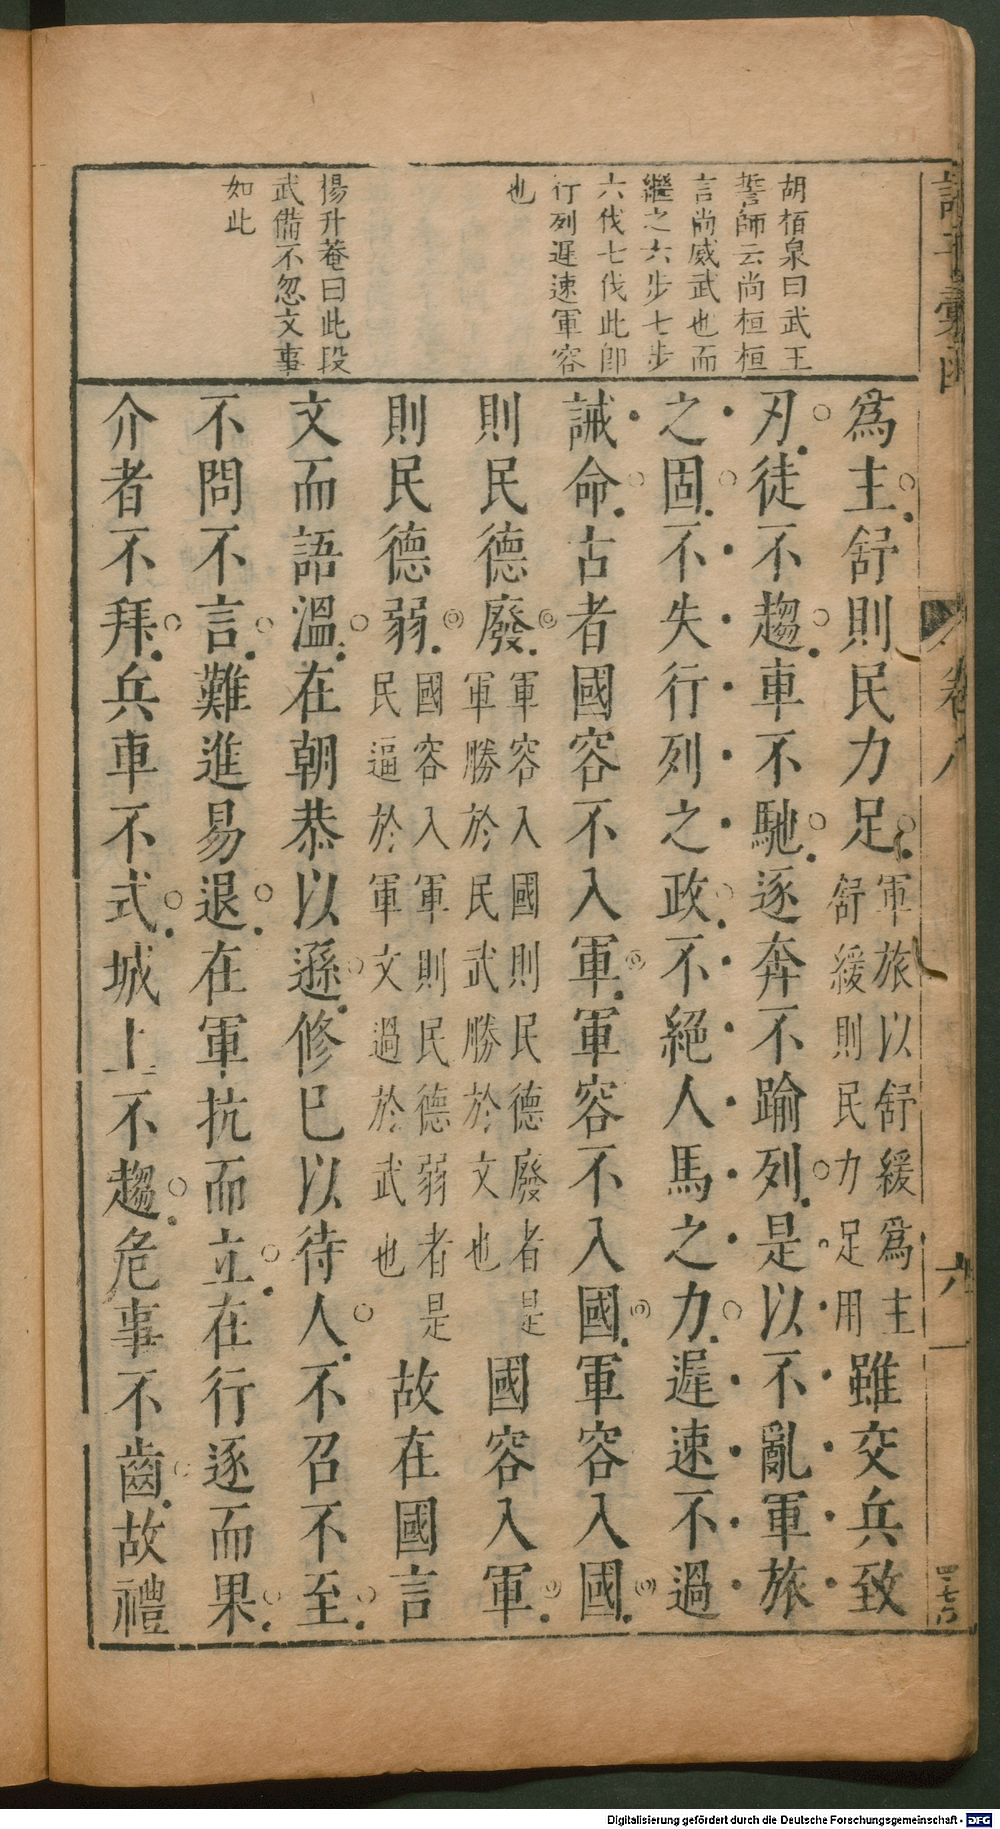 胡栢泉曰武王
誓師云尚桓桓
言尚威武也而
繼之六步七步
六伐七伐此卽
行列遲速軍容
也
揚升菴曰此段
武備不忽文事
如此
爲主舒則民力足軍旅以舒緩爲主舒緩則民力足用雖交兵致
刃徒不趨車不馳逐奔不踰列是以不亂軍旅
之固不失行列之政不絕人馬之力遲速不過
誡命古者國容不入軍軍容不入國軍容入國
則民德廢軍容入國則民德廢者是軍勝於民武勝於文也國容入軍
則民德弱國容入軍則民德弱者是民逼於軍文過於武也故在國言
文而語溫在朝恭以遜修已以待人不召不至
不問不言難進易退在軍抗而立在行逐而果
介者不拜兵車不式城上不趨危事不齒故禮
卷八
六
Digitalisierung gefördert durch die Deutsche Forschungsgemeinschaft - DFG